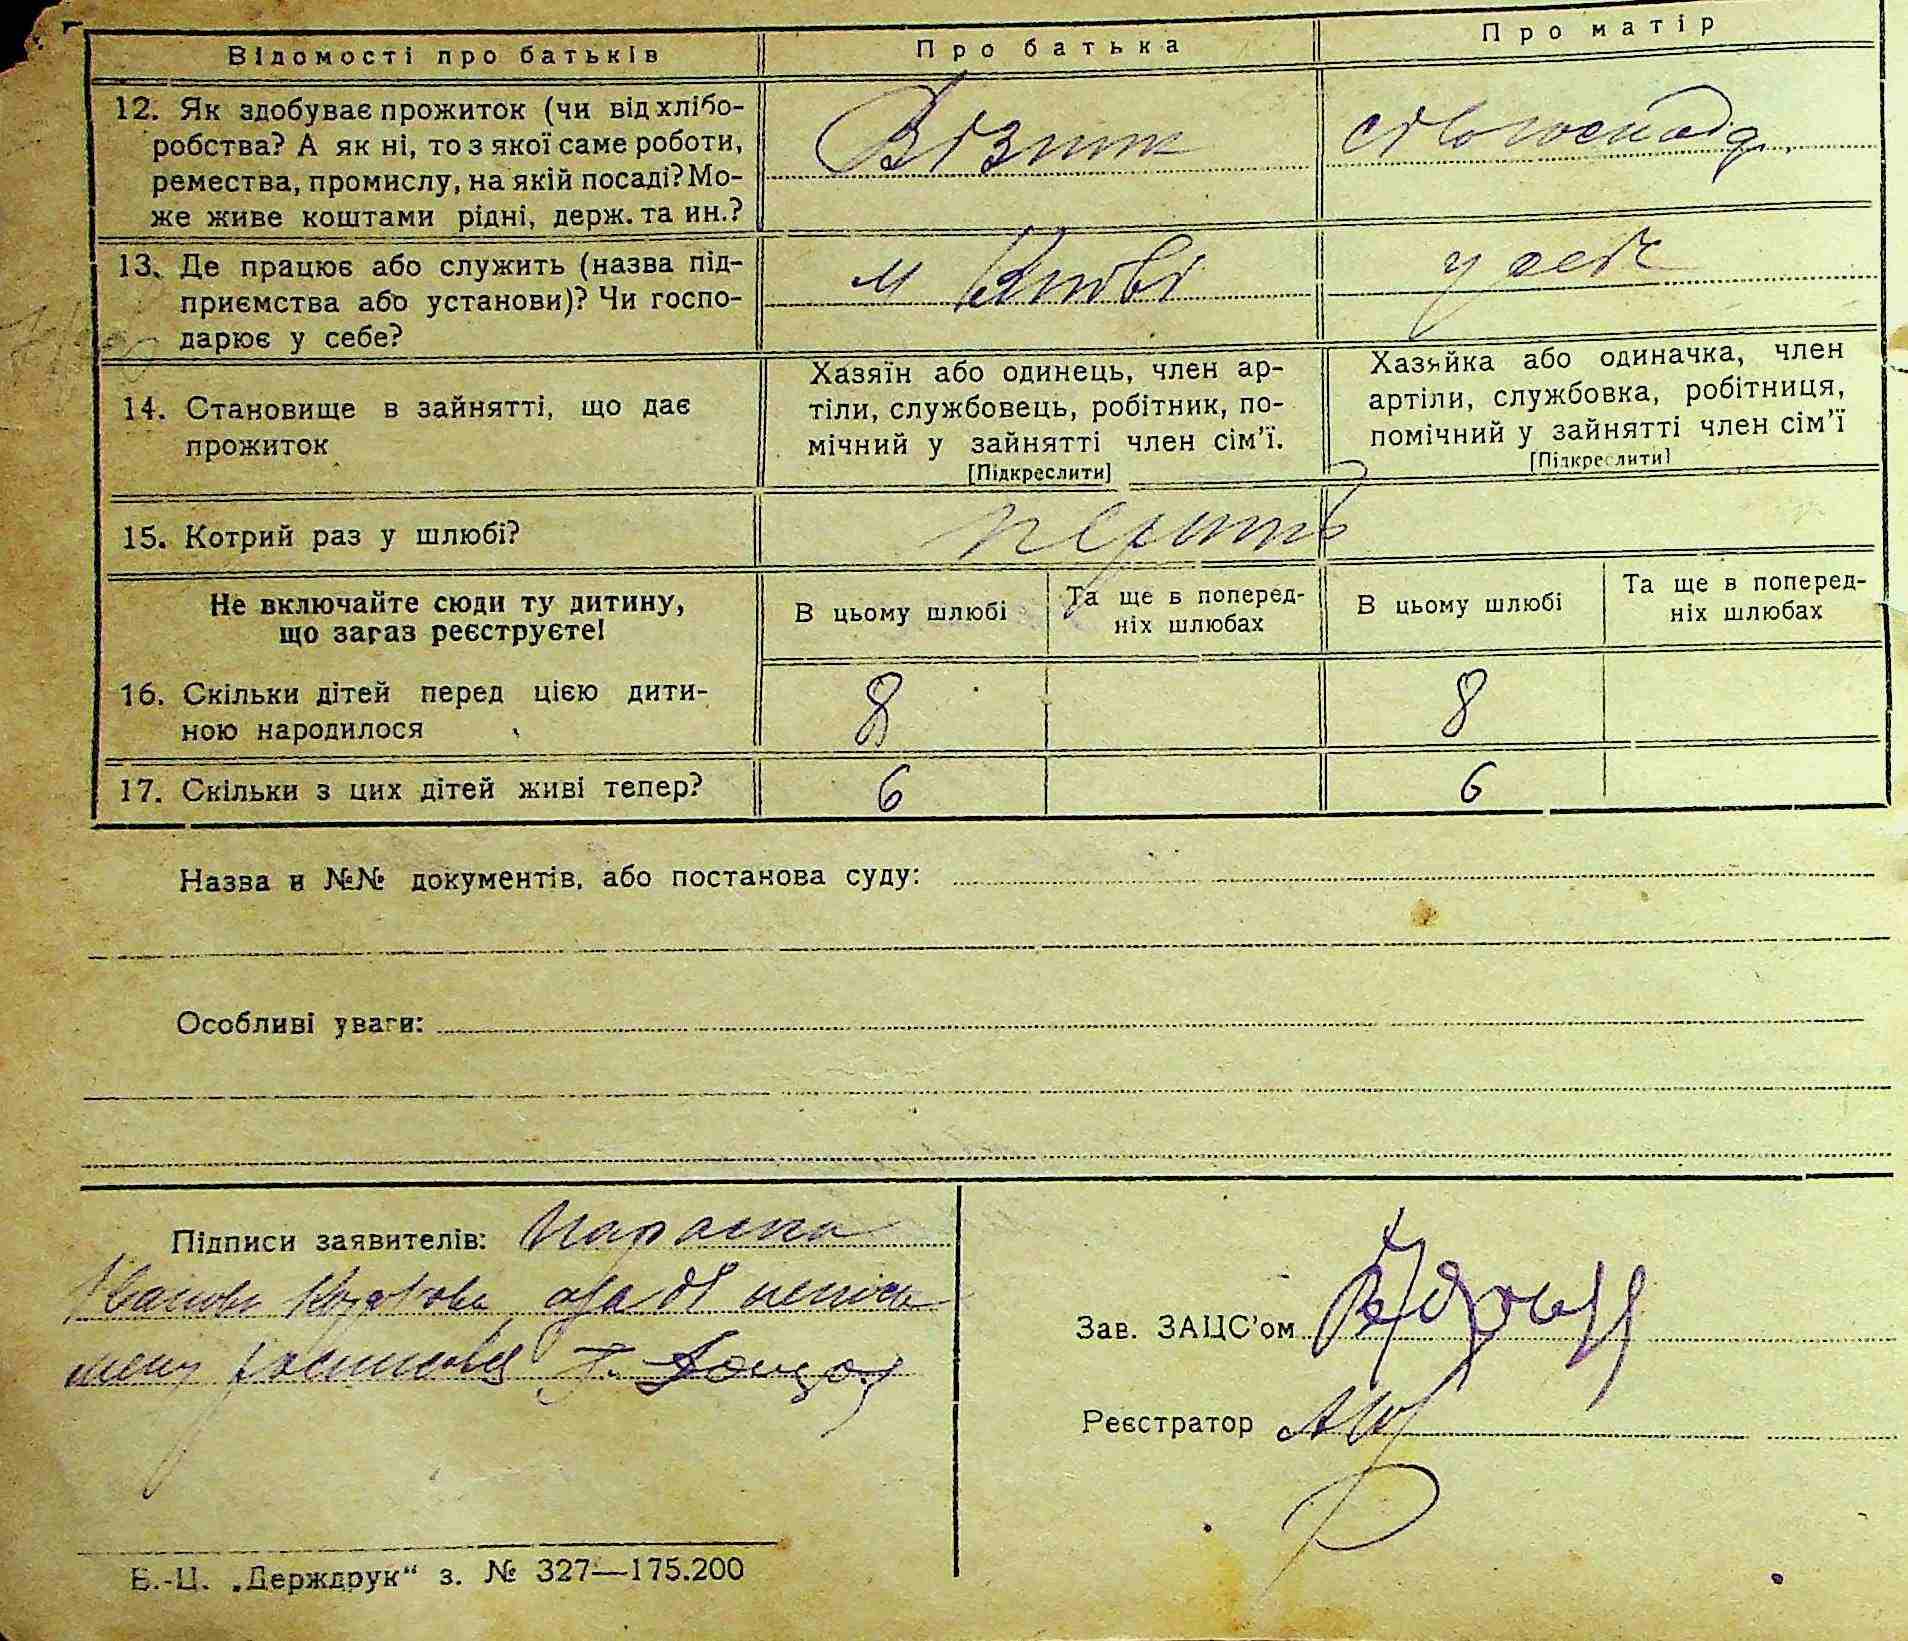 Відомості про батьків
Про батька
Про матір
12. Як здобуває прожиток (чи від хлібо-
робства? А як ні, то з якої саме роботи,
ремества, промислу, на якій посаді? Мо-
же живе коштами рідні, держ. та ин.?
Візник
13. Де працює або служить (назва під-
приємства або установи)? Чи госпо-
дарює у себе?
м Київі
у себе
14. Становище в зайнятті, що дає
прожиток
Хазяїн або одинець, член ар-
тіли, службовець, робітник, по-
мічний у зайнятті член сім'ї.
[Підкреслити]
Хазяйка або одиначка, член
артіли, службовка, робітниця,
помічний у зайнятті член сім'ї
[Підкреслити]
15. Котрий раз у шлюбі?
Не включайте сюди ту дитину,
що зараз реєструєте!
В цьому шлюбі
Та ще в поперед-
ніх шлюбах
В цьому шлюбі
Та ще в поперед-
ніх шлюбах
16. Скільки дітей перед цією дити-
ною народилося
8
8
17. Скільки з цих дітей живі тепер?
6
6
Назва и №№ документів, або постанова суду:
Особливі уваги:
Підписи заявителів: Параска
Зав. ЗАЦС'ом
Реєстратор
Б.-Ц. „Держдрук" з. № 327—175.200